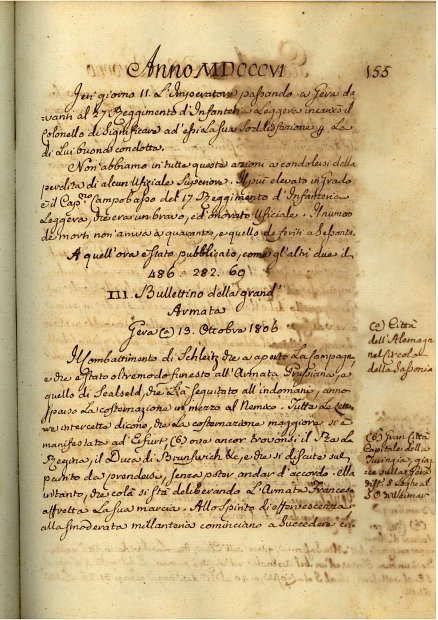 Anno MDCCCVI
155
Ieri giorno 11. L'Imperatore passando a Gera da
vanti al 27 Reggimento d'Infanteria Leggera incaricò il
Colonello di significare ad essi la sua Soddisfazione p. La
di Lui buona condotta.
Non abbiamo in tutte queste azioni a condolersi della
perdita di alcun Ufiziale Superiore. Il più elevato in grado
è il Cap.no Campobasso del 17 Reggimento d'Infanteria
Leggera, che era un bravo, ed onorato Uficiale. Il numero
de morti non arriva a quaranta, e quello de feriti a Sessanta.
A quell'ora è stato pubblicato, come gl'altri due il
486. 282. 69
III. Bullettino della grand'
Armata
Gera (a) 13. Ottobre 1806
Il Combattimento di Schleitz che a aperto La Campagna,
e che è stato oltremodo funesto all'Armata Prussiana, e
quello di Sealfeld, che L'à seguitato all'indomani, anno
sparso La costernazione in mezzo al Nemico. Tutte Le Lette
re intercette dicono, che La costernazione maggiore si è
manifestata ad Erfurt (b) ove ancor trovansi il Re La
Regina, il Duca di Brunswich &c, e che si discute sul
partito da prendersi, senza poter andar d'accordo. Ma
intanto, che colà si stà deliberando L'Armata Francese
affretta La sua marcia. Allo Spirito di effervescenza
alla smoderata millanteria cominciano a succedere
(a) Città
dell'Alemagn
nel Circolo
della Sassonia
(b) Gran Città
Capitale della
Turingia, gia
ce nella Gera
8 Leghe al
S.O. di Weimar